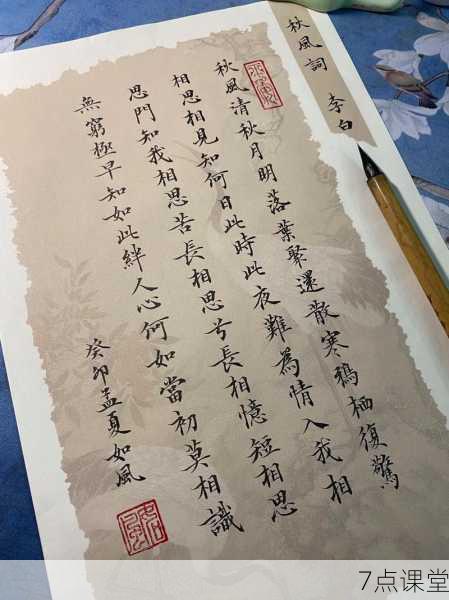 秋風詞 李白
秋風清秋月明落葉聚還散寒鴉栖復驚
相思相見知何日此時此夜難為情入我相
思門知我相思苦長相思兮長相憶短相思
無窮極早知如此絆人心何如當初莫相識
癸卯孟夏如風
7点课堂